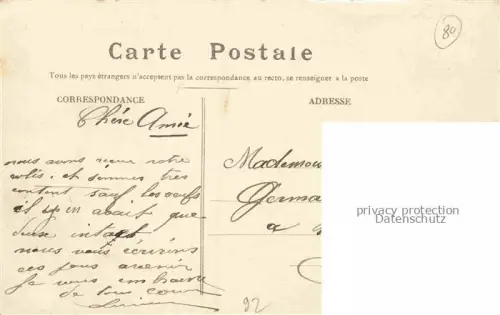 80
Carte Postale
Tous les pays étrangers n'acceptent pas la correspondance au recto, se renseigner à la poste
CORRESPONDANCE
ADRESSE
Chére Amie
nous avons recue votre
colis. et sommes très
content sauf les oeufs
il y en avait que
deux intact
nous vous écrirons
ces jous avenir
Je vous embrasse
de tous coeur
Mademoi
Germa
a
privacy protection
Datenschutz
92